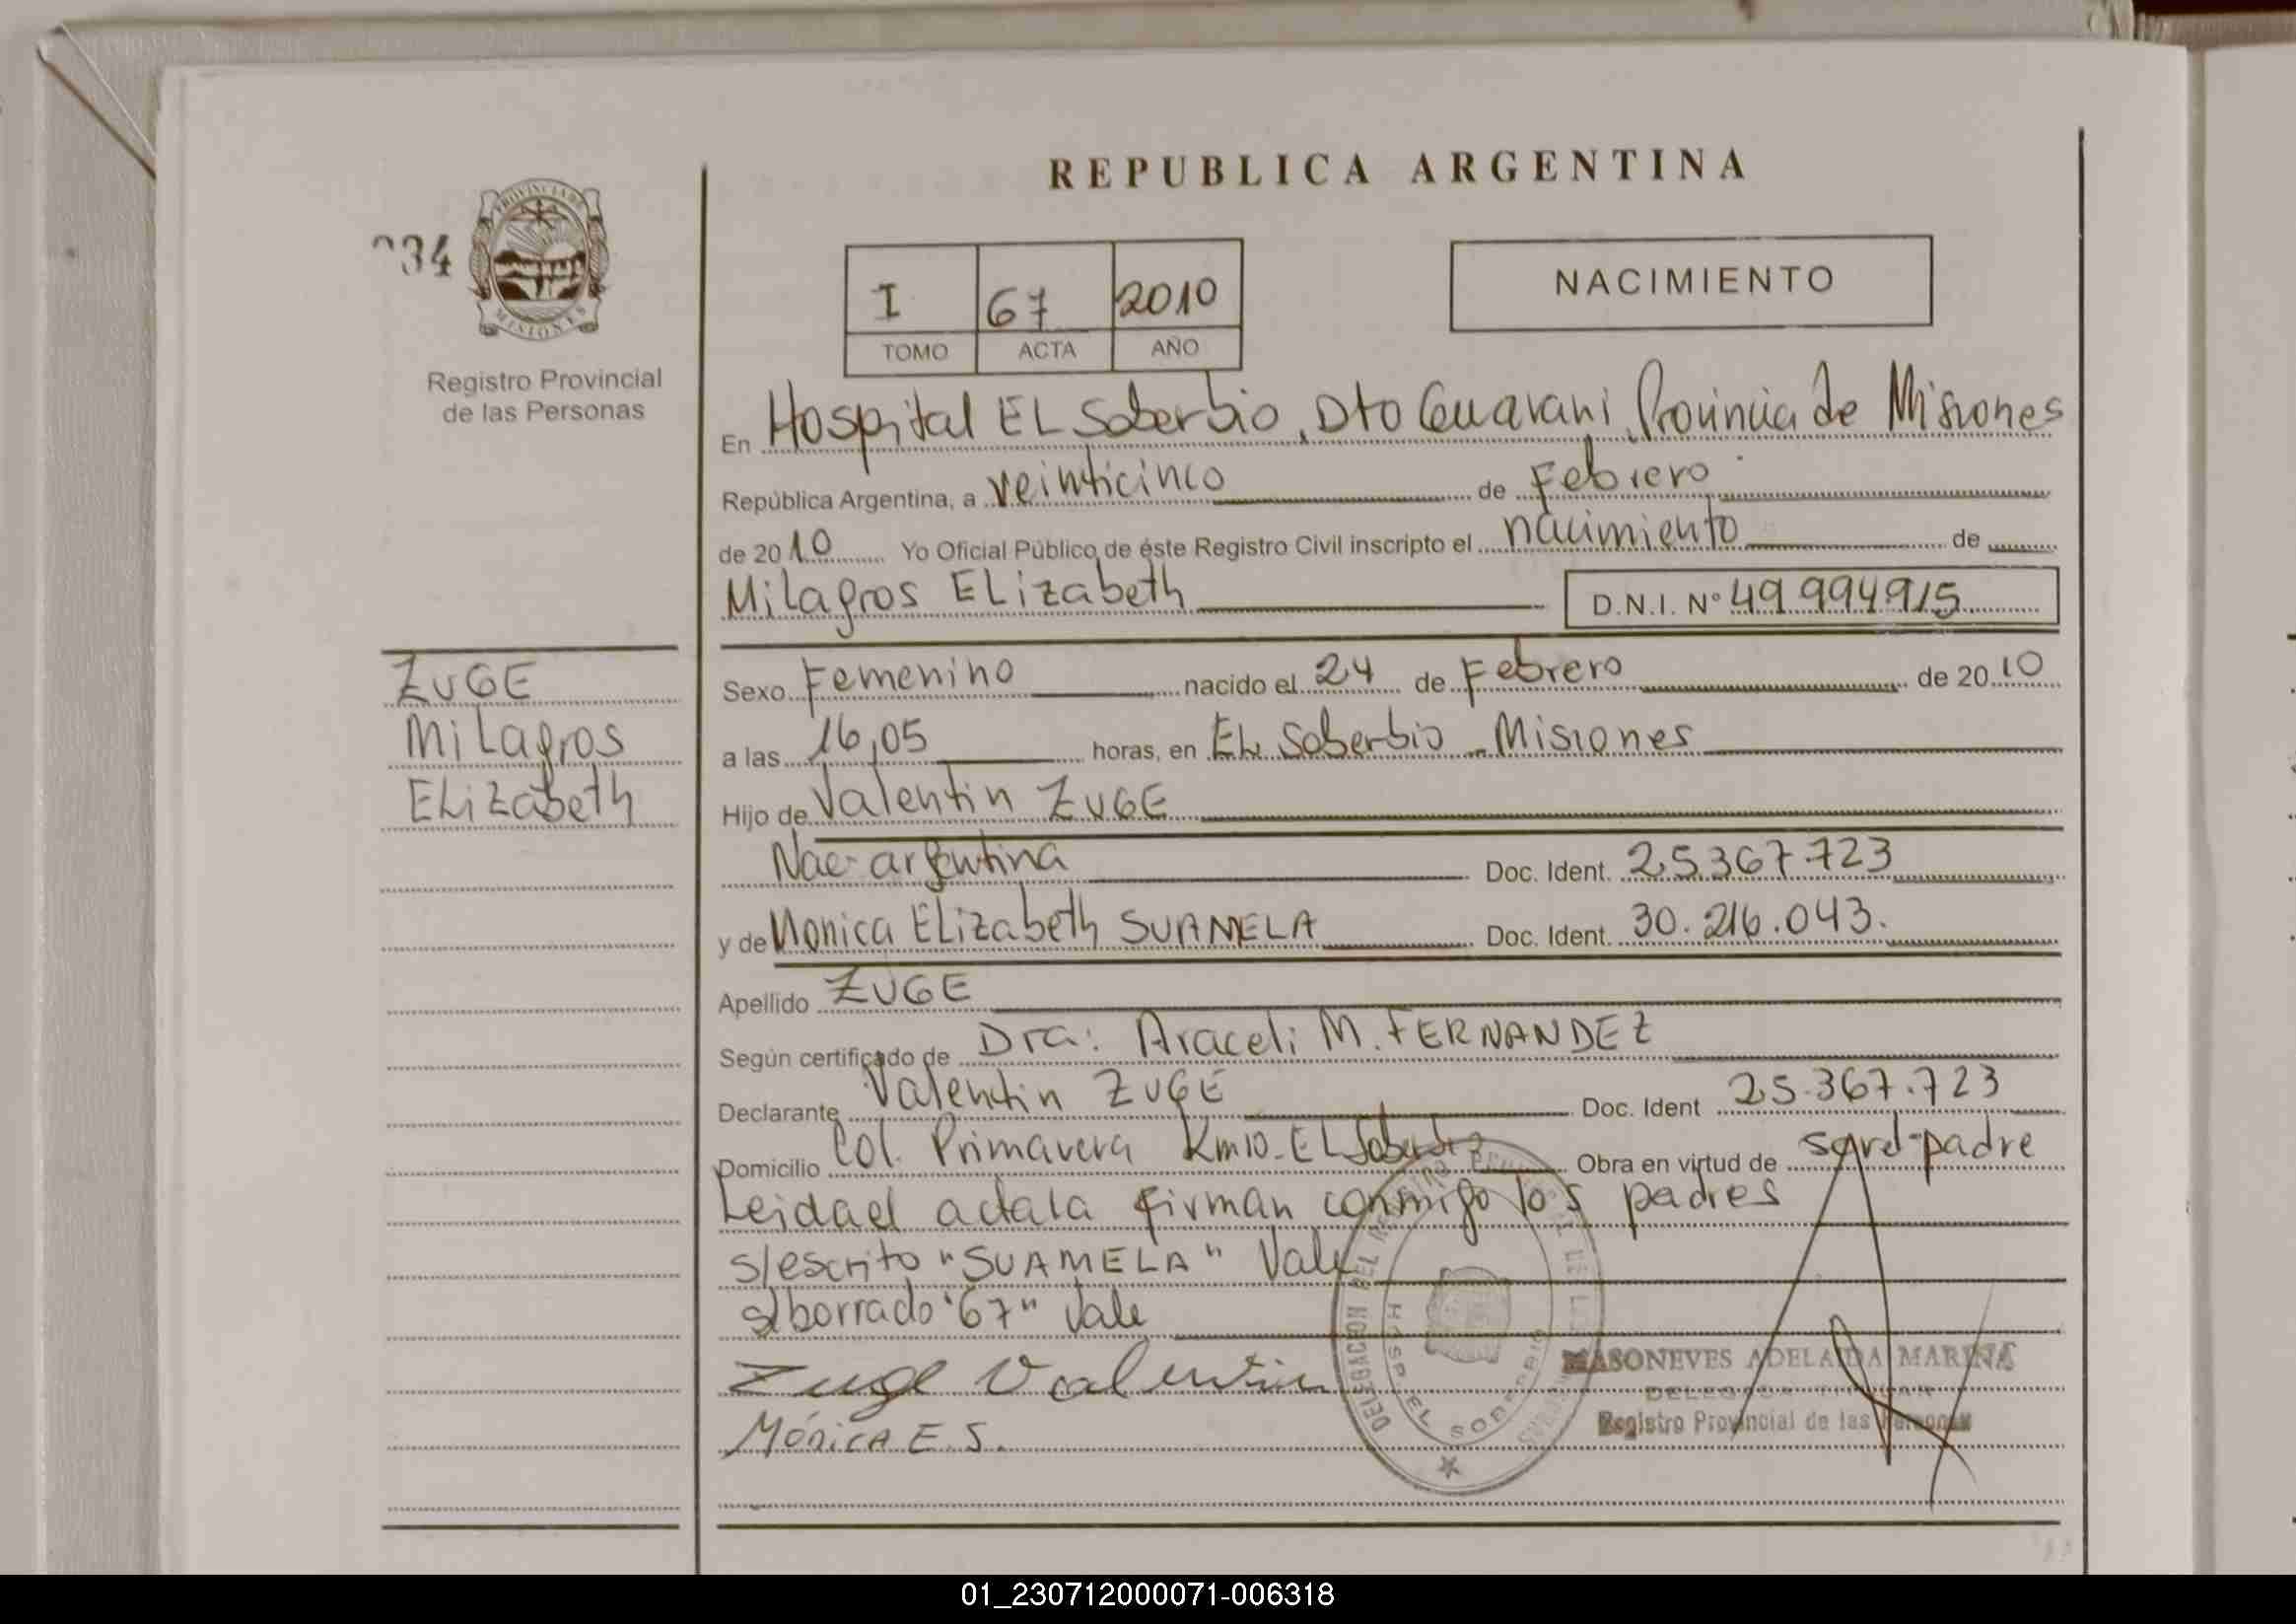 REPUBLICA ARGENTINA
34
PROVINCIA DE
MISIONES
Registro Provincial
de las Personas
I 67 2010
TOMO ACTA AÑO
NACIMIENTO
En Hospital EL Soberbio, Dto Guarani, Provincia de Misiones
República Argentina, a veinticinco de Febrero
de 2010 Yo Oficial Público de éste Registro Civil inscripto el nacimiento de
Milagros ELizabeth D.N.I. Nº 49 994915
ZUGE
Milagros
ELizabeth
Sexo Femenino nacido el 24 de Febrero de 2010
a las 16,05 horas, en EL Soberbio - Misiones
Hijo de Valentin ZUGE
Nac. argentina Doc. Ident. 25367.723
y de Monica ELizabeth SUAMELA Doc. Ident. 30.216.043.
Apellido ZUGE
Según certificado de Dra: Araceli M. FERNANDEZ
Declarante Valentin ZUGE Doc. Ident 25.367.723
Domicilio Col. Primavera Km10- EL Soberbio Obra en virtud de ser el padre
Leida el acta la firman conmigo los padres
s/escrito "SUAMELA" Vale
s/borrado "67" vale
Zuge Valentin
Mónica E. S.
DELEGACION DEL
HOSP. EL SOBERBIO
MASONEVES ADELAIDA MARINA
DELEGADA TITULAR
Registro Provincial de las Personas
01_230712000071-006318